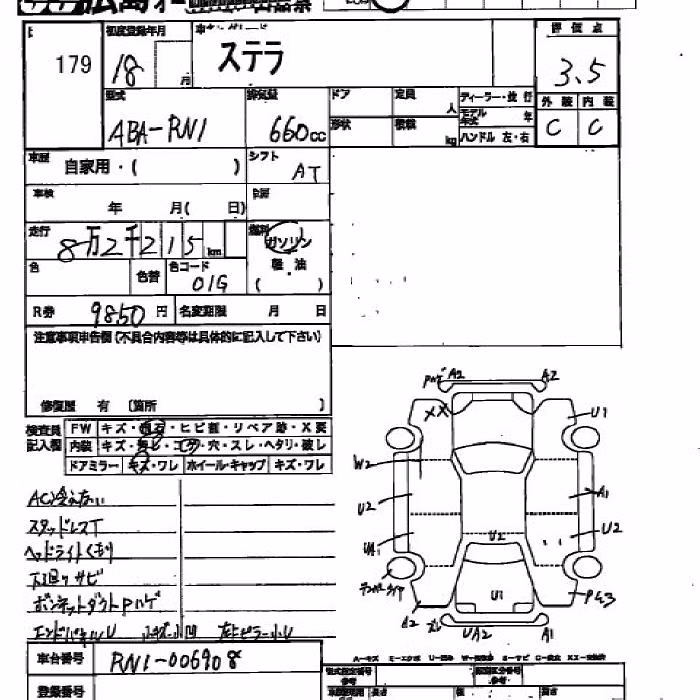 179
初度登録年月
18
月
ステラ
評価点
3.5
型式
ABA-RN1
排気量
660cc
ドア
定員
人
ディーラー・並行
モデル年式
年
形状
積載
kg
ハンドル 左・右
外装
内装
C
C
車歴
自家用・( )
シフト
AT
車検
年 月( 日)
走行
8万2千215km
燃料
ガソリン
軽・油
( )
色
色替
色コード
01G
R券
9850円
名変期限 月 日
注意事項申告欄(不具合内容等は具体的に記入して下さい)
修復歴 有 〔箇所 〕
検査員記入欄
FW キズ・ ・ヒビ割・リペア跡・X要
内装 キズ・ ・コゲ・穴・スレ・ヘタリ・破レ
ドアミラー キズ・ワレ ホイールキャップ キズ・ワレ
AC冷えない
スタッドレスT
ヘッドライトくもり
下回りサビ
ボンネットダクトPハゲ
小キズ小凹
Pハゲ A2 A2
XX
U1
W2
U2
A1
UA1
U2
U2
U1
A2
UA2
A1
車台番号
RN1-006908
登録番号